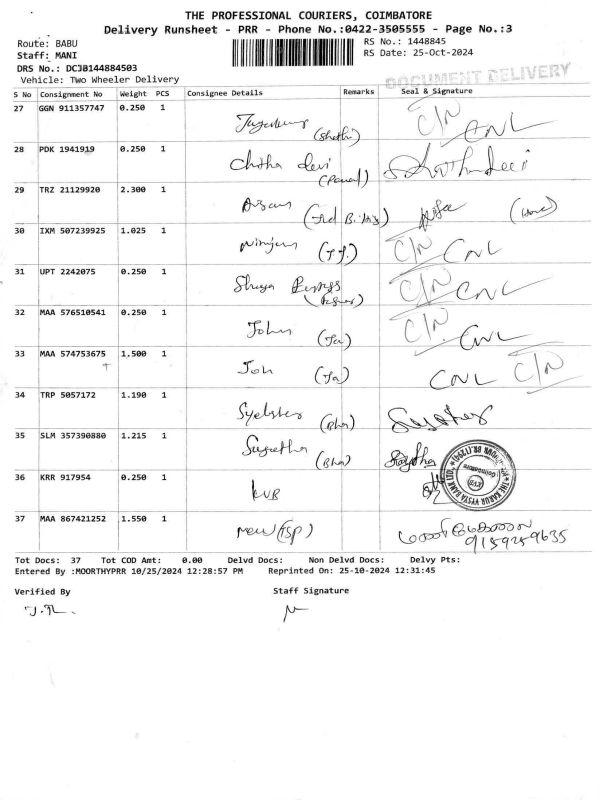 THE PROFESSIONAL COURIERS, COIMBATORE
Delivery Runsheet - PRR - Phone No.:0422-3505555 - Page No.:3
Route: BABU
RS No.: 1448845
Staff: MANI
RS Date: 25-Oct-2024
DRS No.: DCJB144884503
Vehicle: Two Wheeler Delivery
DOCUMENT DELIVERY
S No Consignment No Weight PCS Consignee Details Remarks Seal & Signature
27 GGN 911357747 0.250 1
C/N CNL
28 PDK 1941919 0.250 1
Chitha Devi
29 TRZ 21129920 2.300 1
30 IXM 507239925 1.025 1
C/N CNL
31 UPT 2242075 0.250 1
C/N CNL
32 MAA 576510541 0.250 1
John (Ja) C/N CNL
33 MAA 574753675 1.500 1
Joh (Ja) CNL C/N
34 TRP 5057172 1.190 1
35 SLM 357390880 1.215 1
Sugetha (Bha)
36 KRR 917954 0.250 1
KVB
THE KARUR VYSYA BANK LTD.
Coimbatore
37 MAA 867421252 1.550 1
(TSP)
9159259635
Tot Docs: 37 Tot COD Amt: 0.00 Delvd Docs: Non Delvd Docs: Delvy Pts:
Entered By :MOORTHYPRR 10/25/2024 12:28:57 PM Reprinted On: 25-10-2024 12:31:45
Verified By Staff Signature